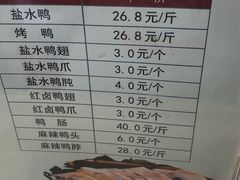 盐水鸭 26.8元/斤
烤鸭 26.8元/斤
盐水鸭翅 3.0元/个
盐水鸭爪 3.0元/个
盐水鸭肫 4.0元/个
红卤鸭翅 3.0元/个
红卤鸭爪 3.0元/个
鸭肠 40.0元/斤
麻辣鸭头 6.0元/个
麻辣鸭脖 28.0元/斤